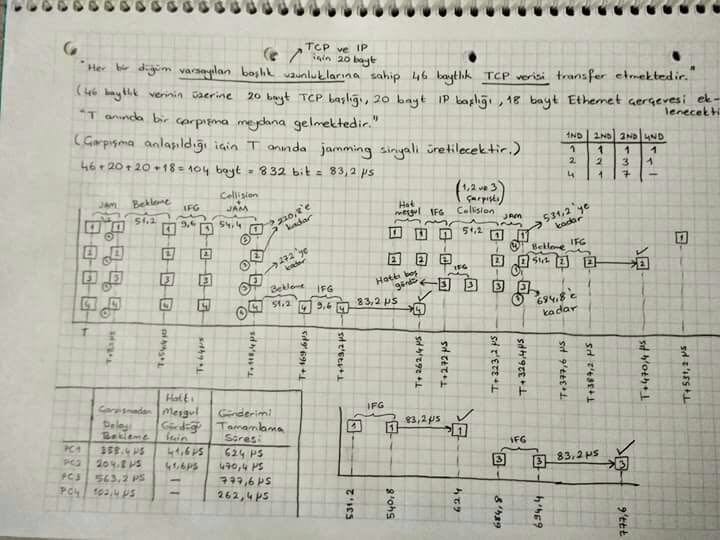 TCP ve IP
için 20 bayt
"Her bir düğüm varsayılan başlık uzunluklarına sahip 46 baytlık TCP verisi transfer etmektedir."
(46 baytlık verinin üzerine 20 bayt TCP başlığı, 20 bayt IP başlığı, 18 bayt Ethernet çerçevesi ek-
lenecektir
"T anında bir çarpışma meydana gelmektedir."
(Çarpışma anlaşıldığı için T anında jamming sinyali üretilecektir.)
46+20+20+18=104 bayt = 832 bit = 83,2 μs
1ND 2ND 3ND 4ND
1 1 1 1
2 2 3 1
4 1 7 —
JAM Bekleme IFG Collision + JAM
51,2 9,6 54,4
220,8'e kadar
272'ye kadar
1 1 1 1 1
2 2 2 2 2
3 3 3 3 3
4 4 4 4 4
Bekleme IFG
51,2 9,6 4 4 83,2 μs 4
(1,2 ve 3 çarpıştı)
Hat meşgul IFG Collision JAM
51,2
531,2'ye kadar
1 1 1 1 1
Bekleme IFG
2 2 2 2 51,2 2 2 2
Hattı boş gördü
IFG
3 3 3 3
684,8'e kadar
T
T+54,4 μs
T+64 μs
T+118,4 μs
T+169,6 μs
T+179,2 μs
T+262,4 μs
T+272 μs
T+323,2 μs
T+326,4 μs
T+377,6 μs
T+387,2 μs
T+470,4 μs
T+531,2 μs
Çarpışmadan Dolayı Bekleme
Hattı Meşgul Gördüğü İçin
Gönderimi Tamamlama Süresi
PC1 358,4 μs 41,6 μs 624 μs
PC2 204,8 μs 41,6 μs 470,4 μs
PC3 563,2 μs — 777,6 μs
PC4 102,4 μs — 262,4 μs
IFG
1 1 83,2 μs 1
IFG
3 3 83,2 μs 3
531,2
540,8
624
684,8
694,4
777,6